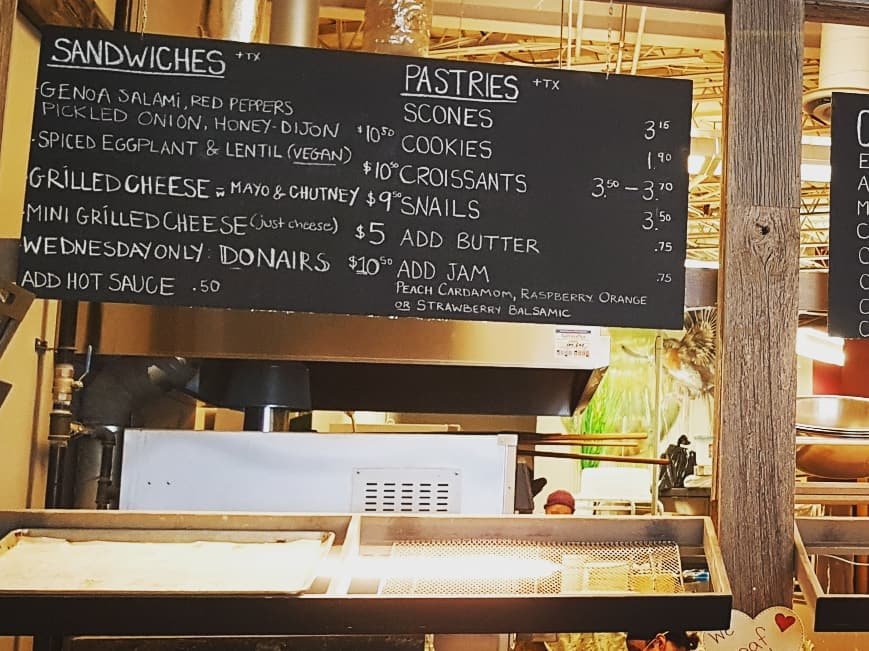 SANDWICHES +TX
GENOA SALAMI, RED PEPPERS
PICKLED ONION, HONEY-DIJON $10.50
·SPICED EGGPLANT & LENTIL (VEGAN) $10.50
GRILLED CHEESE w MAYO & CHUTNEY $9.50
·MINI GRILLED CHEESE (just cheese) $5
WEDNESDAY ONLY: DONAIRS $10.50
ADD HOT SAUCE .50
PASTRIES +TX
SCONES 3.15
COOKIES 1.90
CROISSANTS 3.50 - 3.70
SNAILS 3.50
ADD BUTTER .75
ADD JAM .75
PEACH CARDAMOM, RASPBERRY ORANGE
OR STRAWBERRY BALSAMIC